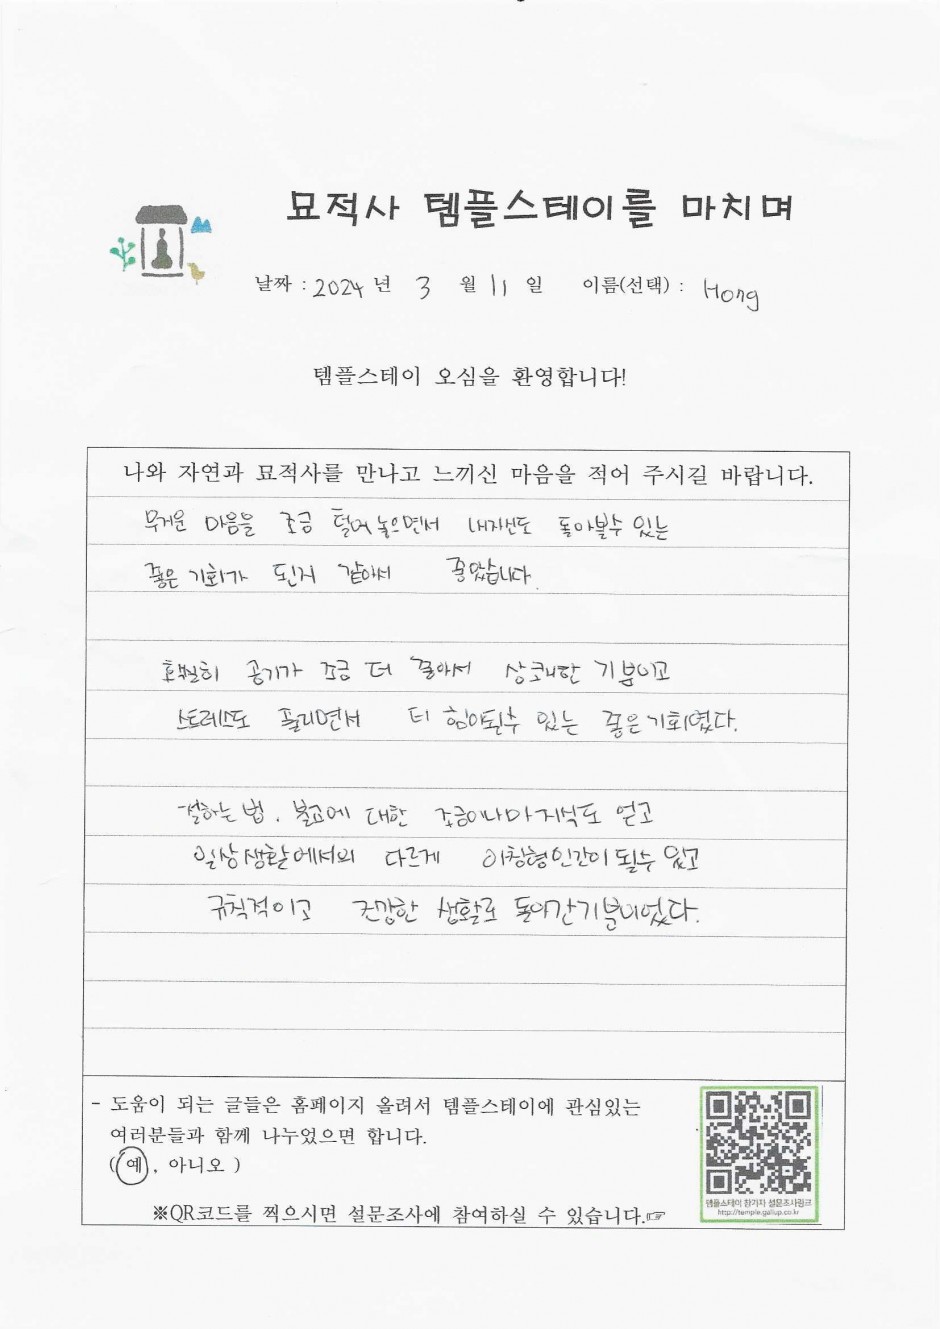 묘적사 템플스테이를 마치며
날짜 : 2024 년 3 월 11 일 이름(선택) : Hong
템플스테이 오심을 환영합니다!
나와 자연과 묘적사를 만나고 느끼신 마음을 적어 주시길 바랍니다.
무거운 마음을 조금 털어놓으면서 내자신도 돌아볼수 있는
좋은 기회가 된거 같아서 좋았습니다.
훨씬히 공기가 조금 더 좋아서 상쾌한 기분이고
스트레스도 풀리면서 더 힘이될수 있는 좋은 기회였다.
절하는 법, 불교에 대한 조금이나마 지식도 얻고
일상생활에서와 다르게 아침형인간이 될수 있고
규칙적이고 건강한 생활로 돌아간기분이었다.
- 도움이 되는 글들은 홈페이지 올려서 템플스테이에 관심있는
여러분들과 함께 나누었으면 합니다.
(예, 아니오 )
템플스테이 참가자 설문조사링크
http://temple.gallup.co.kr
※QR코드를 찍으시면 설문조사에 참여하실 수 있습니다.☞